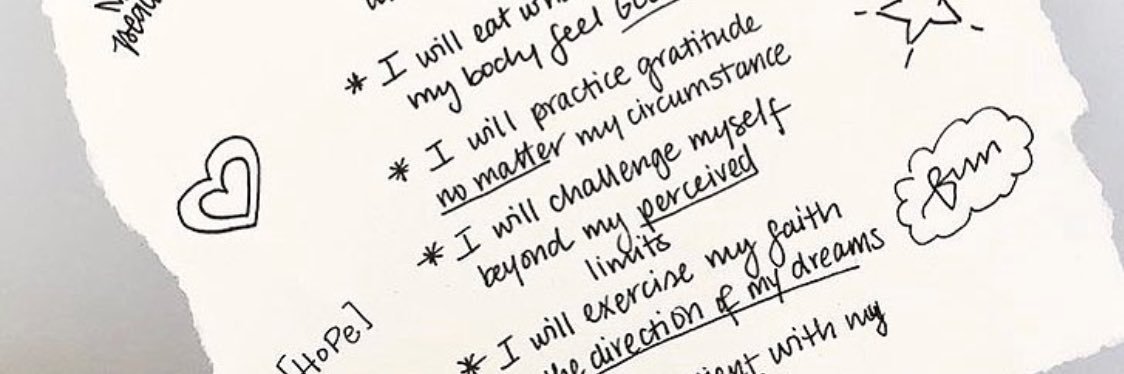 * I will eat
my body feel
* I will practice gratitude
no matter my circumstance
* I will challenge myself
beyond my perceived
limits
* I will exercise my faith
direction of my dreams
with my
[HoPe]
fun